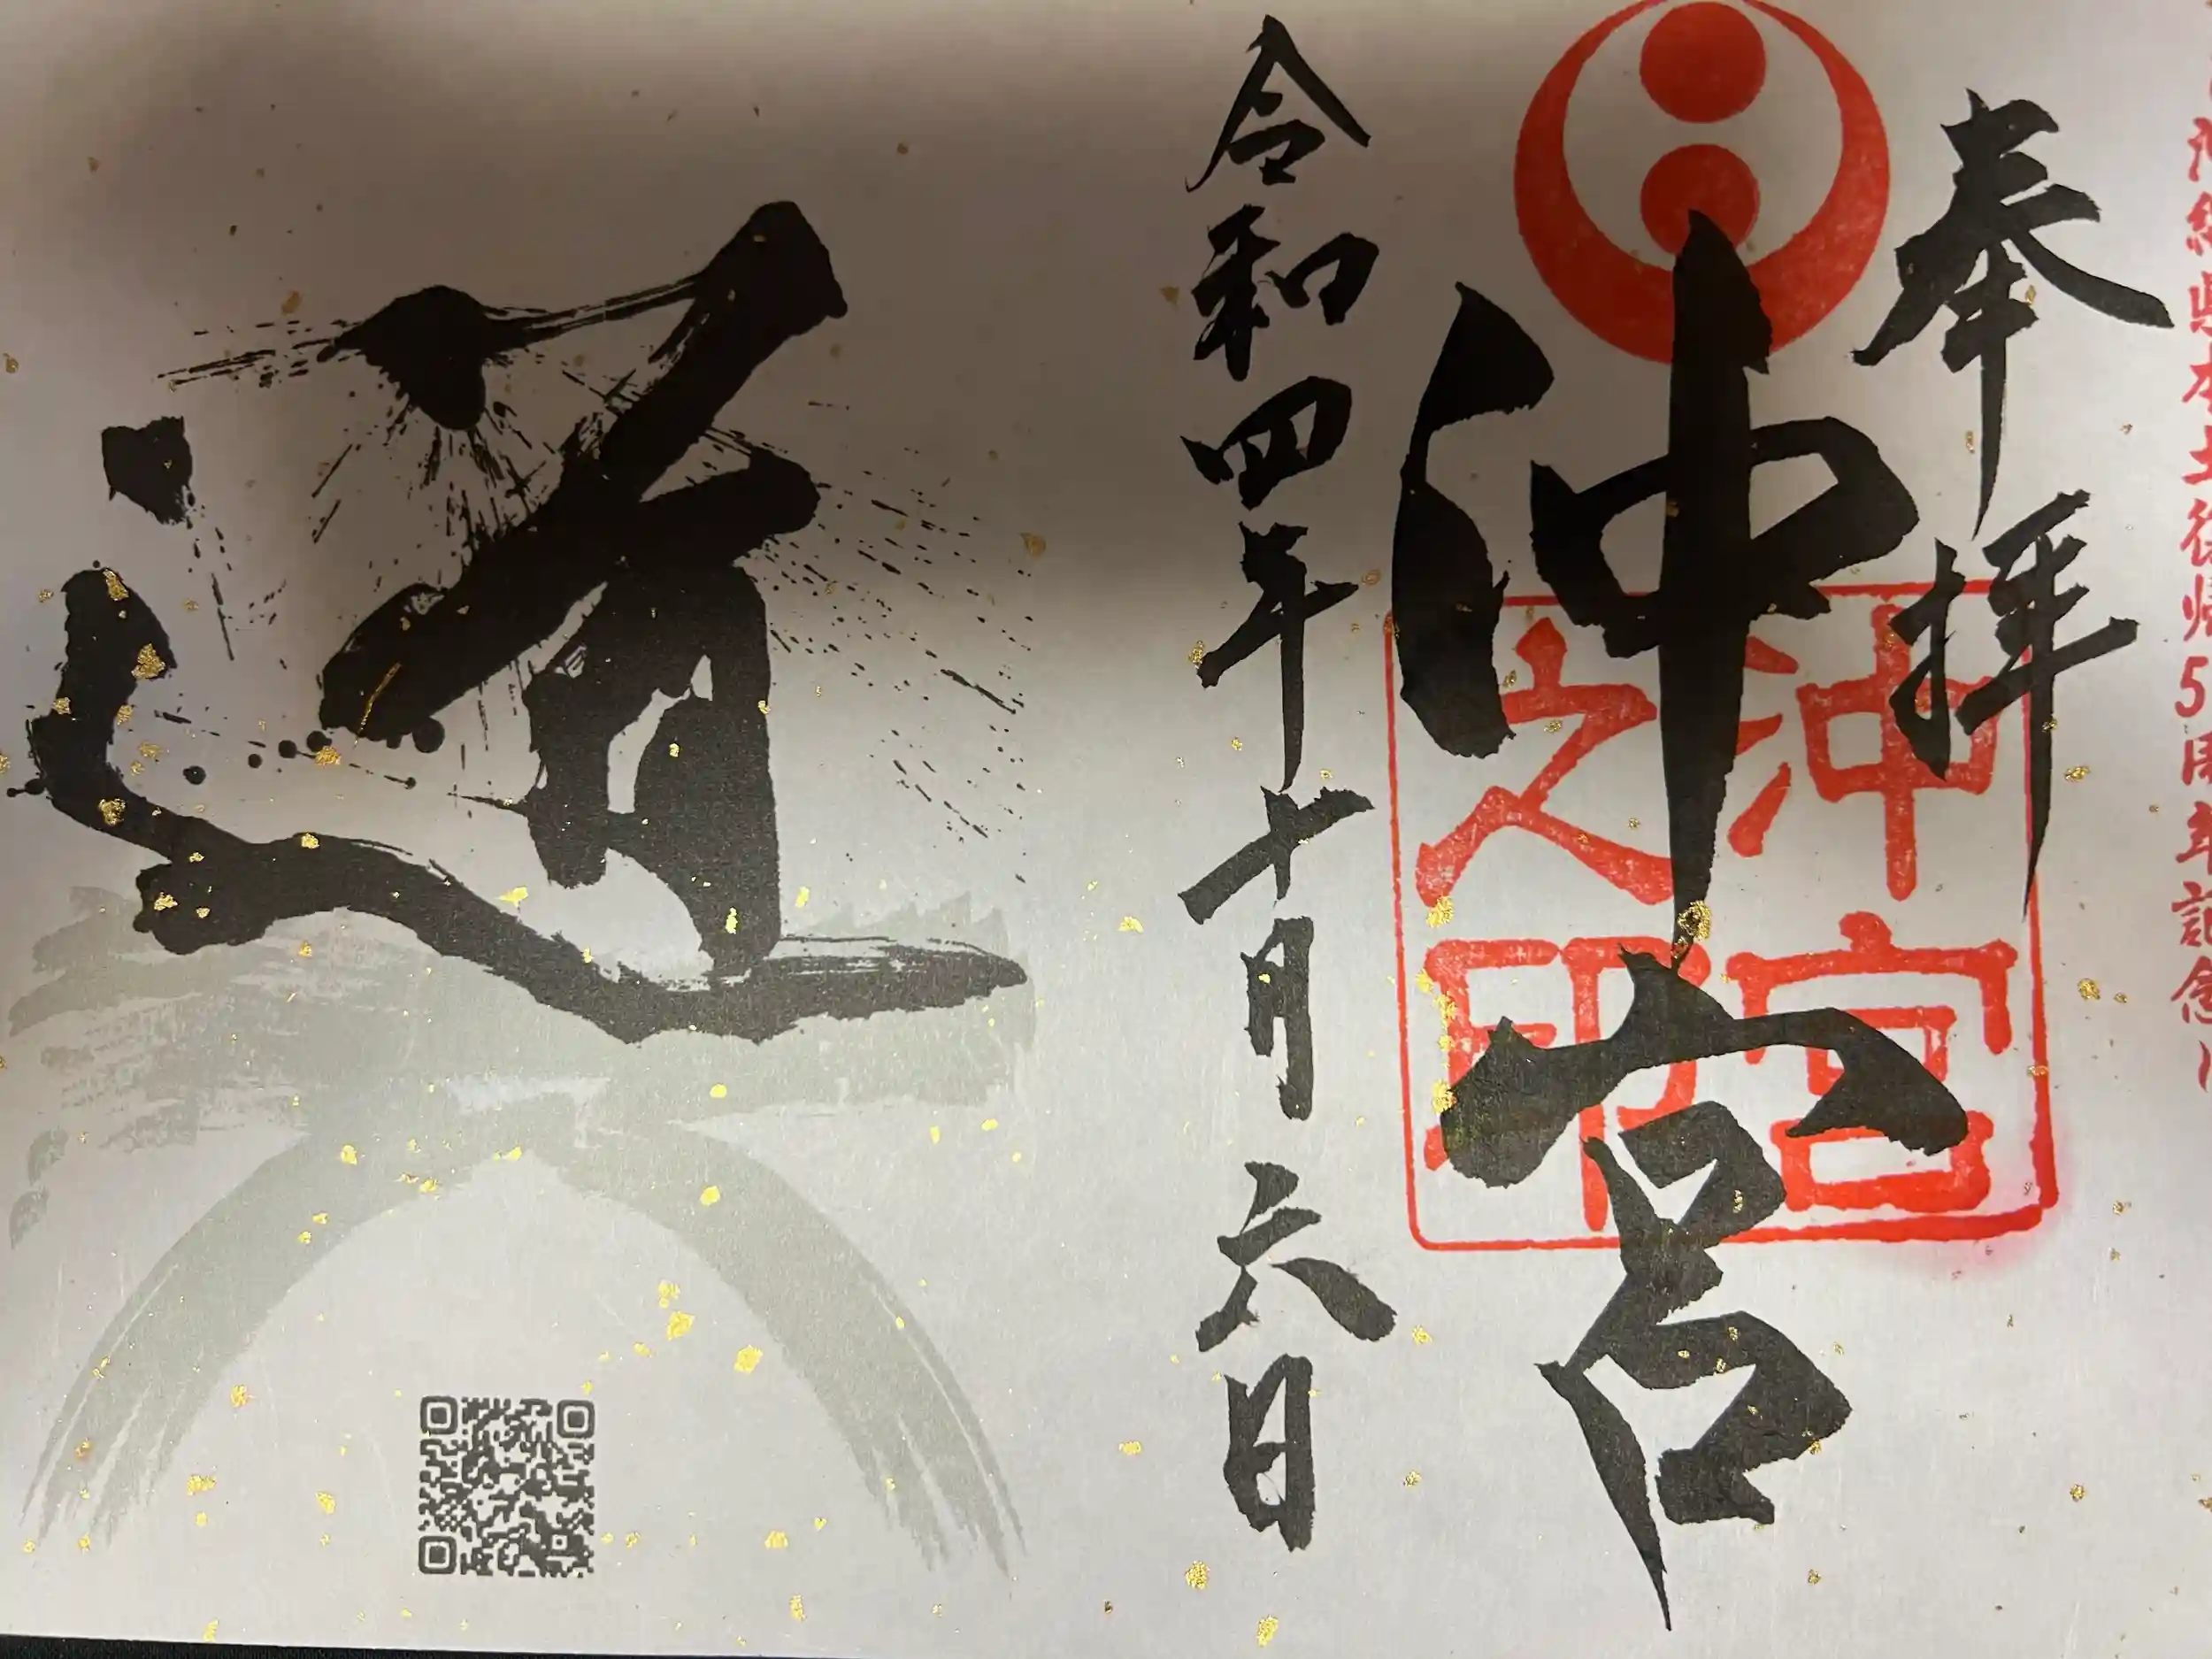 沖縄県本土復帰50周年記念
奉拝
沖宮
沖宮之印
令和四年十月六日
道